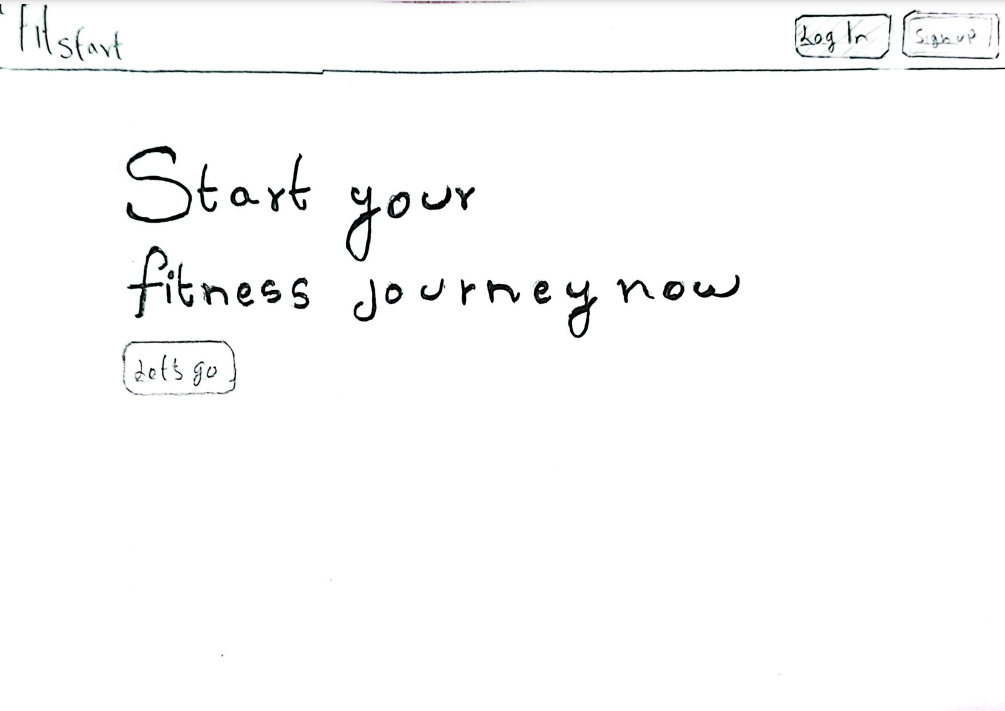 Fitstart
Log In
Sign up
Start your
fitness journey now
Let's go